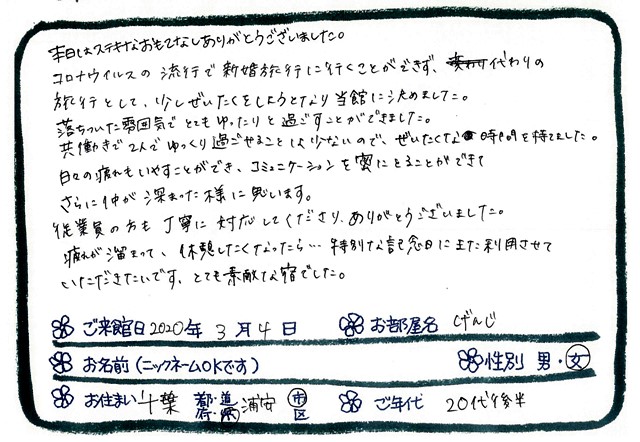 本日はステキなおもてなしありがとうございました。
コロナウイルスの流行で新婚旅行に行くことができず、代わりの
旅行として、少しぜいたくをしようとなり当館に決めました。
落ちついた雰囲気でとてもゆったりと過ごすことができました。
共働きで2人でゆっくり過ごせることも少ないので、ぜいたくな時間を持てました。
日々の疲れもいやすことができ、コミュニケーションを密にとることができて
さらに仲が深まった様に思います。
従業員の方も丁寧に対応してくださり、ありがとうございました。
疲れが溜まって、休憩したくなったら…特別な記念日にまた利用させて
いただきたいです、とても素敵な宿でした。
ご来館日 2020年 3月4日 お部屋名 げんじ
お名前(ニックネームOKです) 性別 男・女
お住まい 千葉 都・道・府・県 浦安 市区 ご年代 20代後半